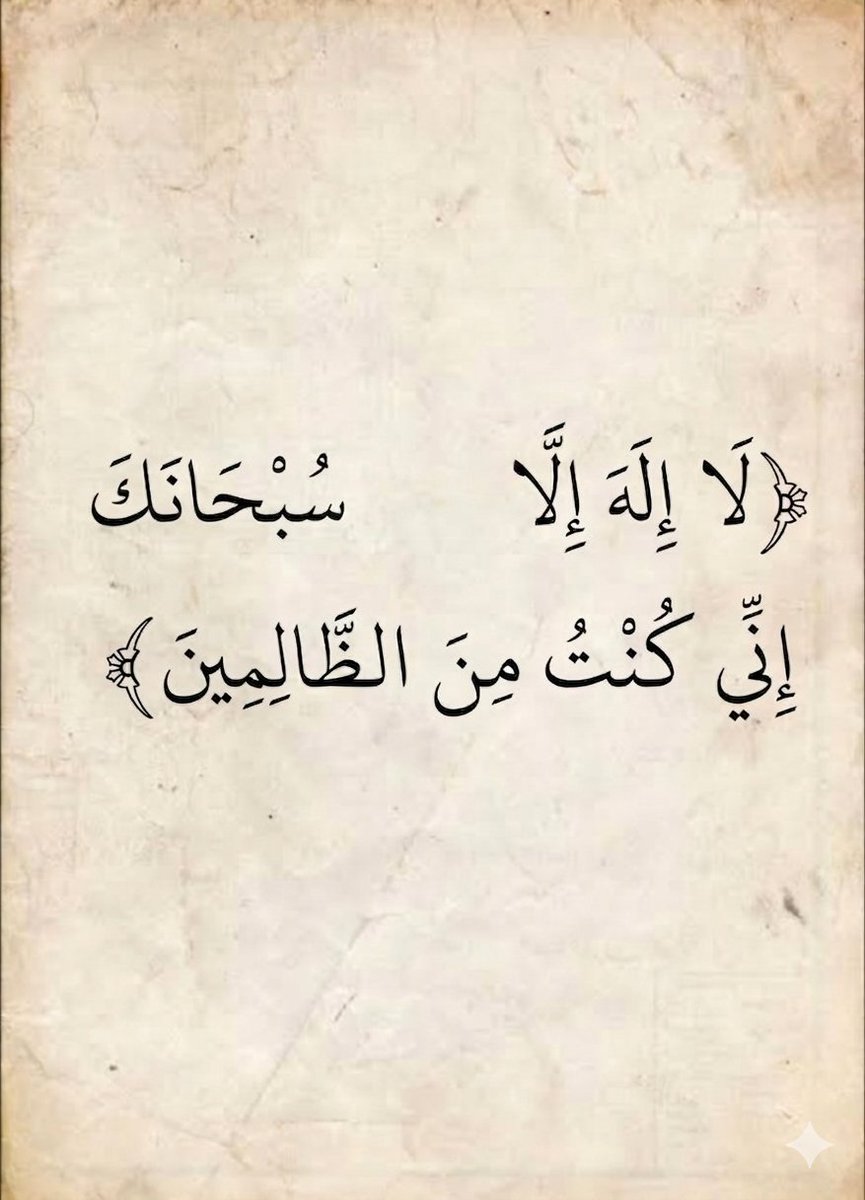 ﴿لَا إِلَهَ إِلَّا سُبْحَانَكَ
إِنِّي كُنْتُ مِنَ الظَّالِمِينَ﴾